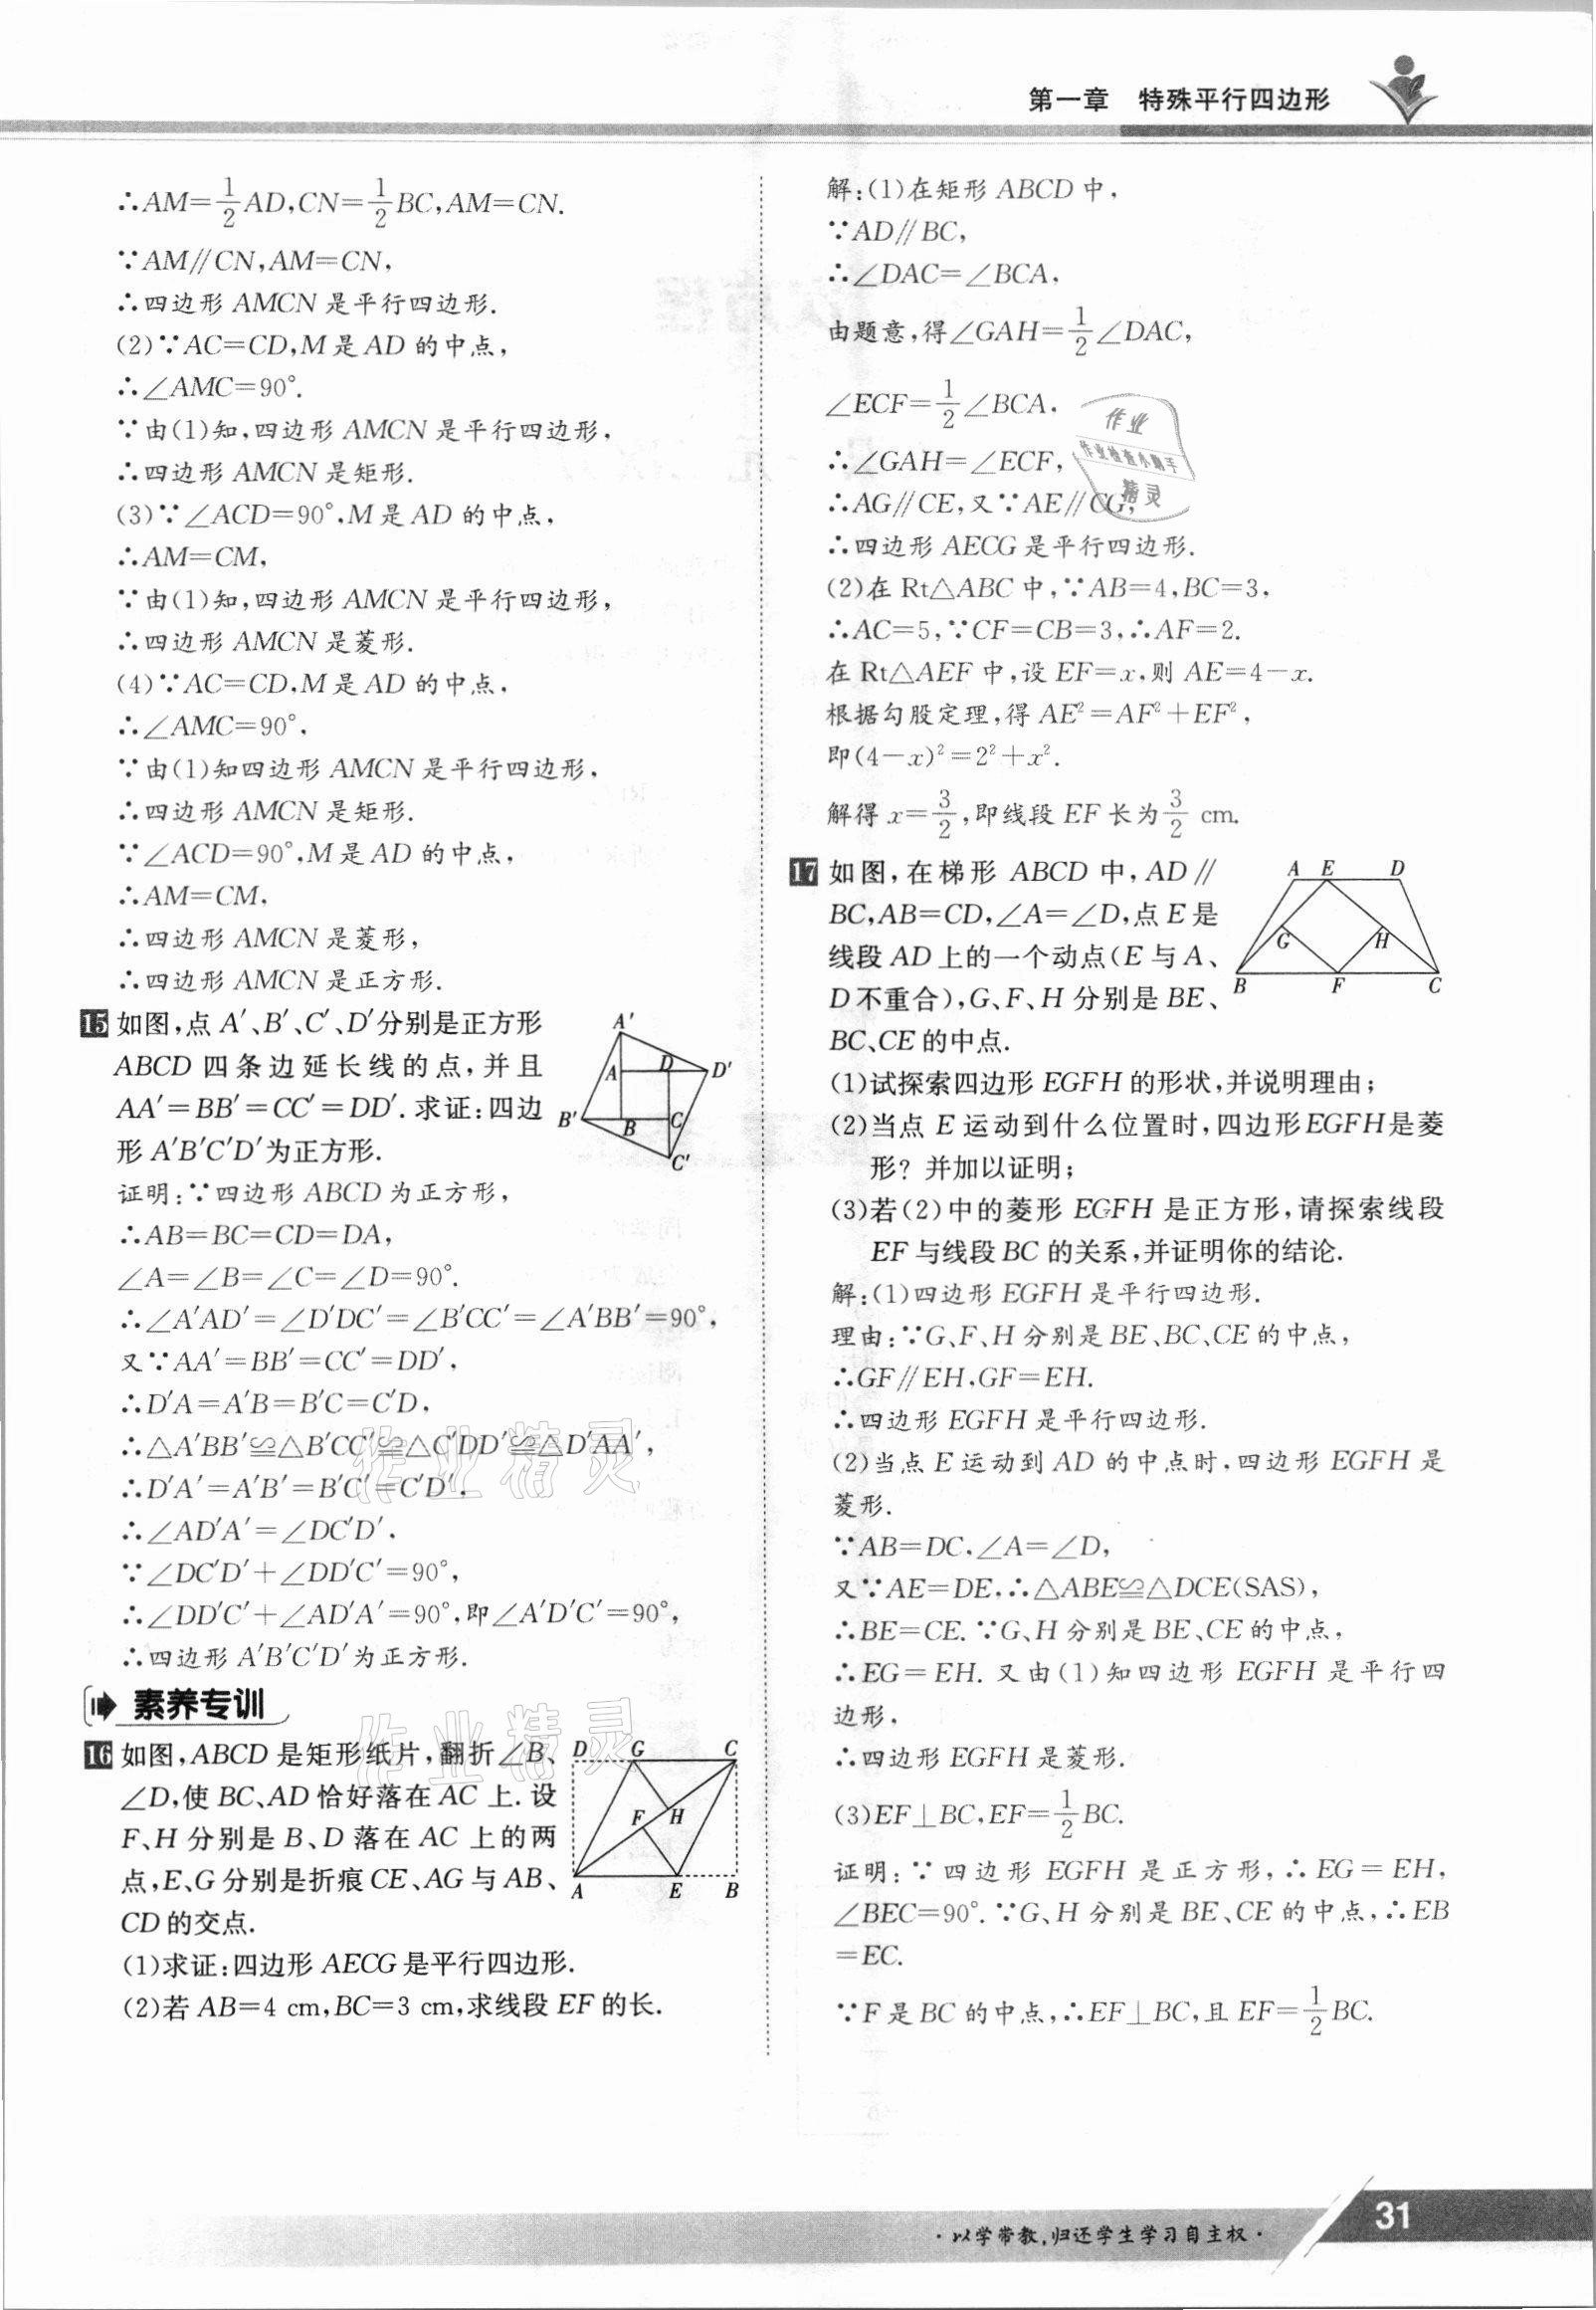 第一章 特殊平行四边形
∴AM=1/2AD,CN=1/2BC,AM=CN.
∵AM∥CN,AM=CN,
∴四边形 AMCN 是平行四边形.
(2)∵AC=CD,M 是 AD 的中点,
∴∠AMC=90°.
∵由(1)知,四边形 AMCN 是平行四边形,
∴四边形 AMCN 是矩形.
(3)∵∠ACD=90°,M 是 AD 的中点,
∴AM=CM,
∵由(1)知,四边形 AMCN 是平行四边形,
∴四边形 AMCN 是菱形.
(4)∵AC=CD,M 是 AD 的中点,
∴∠AMC=90°,
∵由(1)知四边形 AMCN 是平行四边形,
∴四边形 AMCN 是矩形.
∵∠ACD=90°,M 是 AD 的中点,
∴AM=CM,
∴四边形 AMCN 是菱形,
∴四边形 AMCN 是正方形.
15 如图,点 A′、B′、C′、D′分别是正方形
ABCD 四条边延长线的点,并且
AA′=BB′=CC′=DD′.求证:四边
形 A′B′C′D′为正方形.
A′ A D D′ B′ B C C′
证明:∵四边形 ABCD 为正方形,
∴AB=BC=CD=DA,
∠A=∠B=∠C=∠D=90°.
∴∠A′AD′=∠D′DC′=∠B′CC′=∠A′BB′=90°,
又∵AA′=BB′=CC′=DD′,
∴D′A=A′B=B′C=C′D,
∴△A′BB′≌△B′CC′≌△C′DD′≌△D′AA′,
∴D′A′=A′B′=B′C′=C′D′,
∴∠AD′A′=∠DC′D′,
∵∠DC′D′+∠DD′C′=90°,
∴∠DD′C′+∠AD′A′=90°,即∠A′D′C′=90°,
∴四边形 A′B′C′D′为正方形.
素养专训
16 如图,ABCD 是矩形纸片,翻折∠B、
∠D,使 BC、AD 恰好落在 AC 上.设
F、H 分别是 B、D 落在 AC 上的两
点,E、G 分别是折痕 CE、AG 与 AB、
CD 的交点.
D G C F H A E B
(1)求证:四边形 AECG 是平行四边形.
(2)若 AB=4 cm,BC=3 cm,求线段 EF 的长.
解:(1)在矩形 ABCD 中,
∵AD∥BC,
∴∠DAC=∠BCA,
由题意,得∠GAH=1/2∠DAC,
∠ECF=1/2∠BCA,
∴∠GAH=∠ECF,
∴AG∥CE,又∵AE∥CG,
∴四边形 AECG 是平行四边形.
(2)在 Rt△ABC 中,∵AB=4,BC=3,
∴AC=5,∵CF=CB=3,∴AF=2.
在 Rt△AEF 中,设 EF=x,则 AE=4-x.
根据勾股定理,得 AE²=AF²+EF²,
即(4-x)²=2²+x².
解得 x=3/2,即线段 EF 长为3/2 cm.
17 如图,在梯形 ABCD 中,AD∥
BC,AB=CD,∠A=∠D,点 E 是
线段 AD 上的一个动点(E 与 A、
D 不重合),G、F、H 分别是 BE、
BC、CE 的中点.
A E D G H B F C
(1)试探索四边形 EGFH 的形状,并说明理由;
(2)当点 E 运动到什么位置时,四边形EGFH是菱
形?并加以证明;
(3)若(2)中的菱形 EGFH 是正方形,请探索线段
EF 与线段 BC 的关系,并证明你的结论.
解:(1)四边形 EGFH 是平行四边形.
理由:∵G、F、H 分别是 BE、BC、CE 的中点,
∴GF∥EH,GF=EH.
∴四边形 EGFH 是平行四边形.
(2)当点 E 运动到 AD 的中点时,四边形 EGFH 是
菱形.
∵AB=DC,∠A=∠D,
又∵AE=DE,∴△ABE≌△DCE(SAS),
∴BE=CE.∵G、H 分别是 BE、CE 的中点,
∴EG=EH.又由(1)知四边形 EGFH 是平行四
边形,
∴四边形 EGFH 是菱形.
(3)EF⊥BC,EF=1/2BC.
证明:∵四边形 EGFH 是正方形,∴EG=EH,
∠BEC=90°.∵G、H 分别是 BE、CE 的中点,∴EB
=EC.
∵F 是 BC 的中点,∴EF⊥BC,且 EF=1/2BC.
作业
作业检查小助手
精灵
作业精灵
作业精灵
·以学带教,归还学生学习自主权·
31